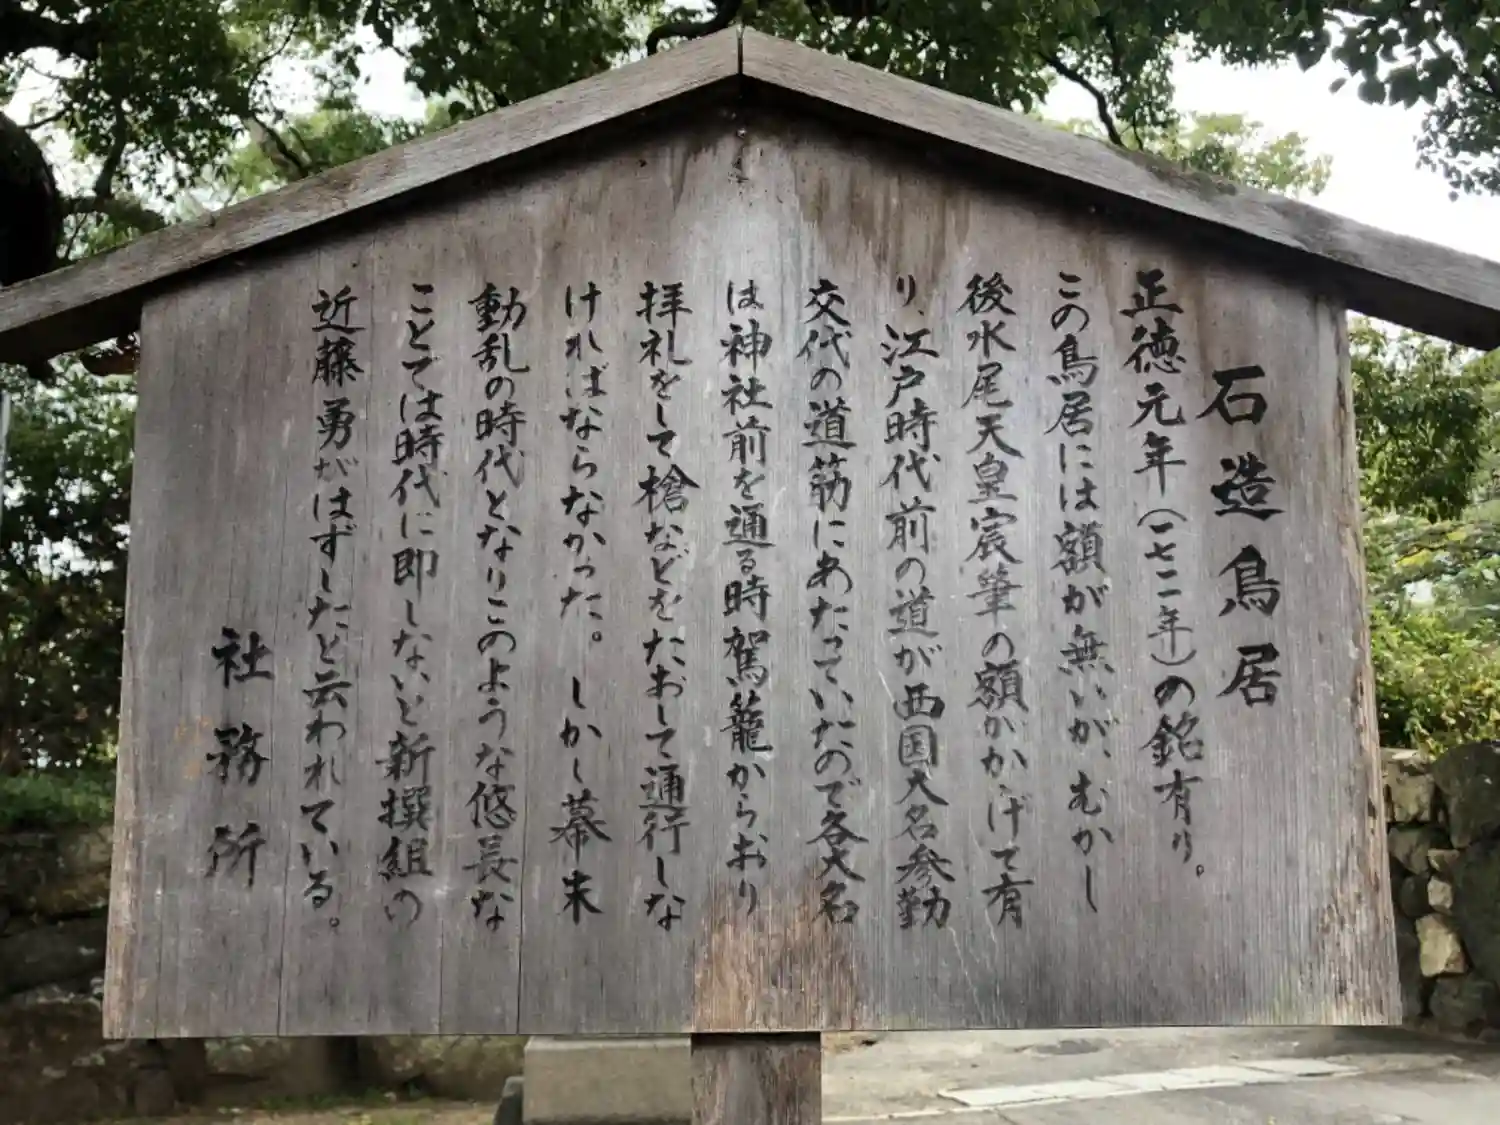 石造鳥居
正徳元年(一七一一年)の銘有り。
この鳥居には額が無いが、むかし
後水尾天皇宸筆の額がかかげて有
り、江戸時代前の道が西国大名参勤
交代の道筋にあたっていたので各大名
は神社前を通る時駕籠からおり
拝礼をして槍などをたおして通行しな
ければならなかった。しかし幕末
動乱の時代となりこのような悠長な
ことでは時代に即しないと新撰組の
近藤勇がはずしたと云われている。
社務所